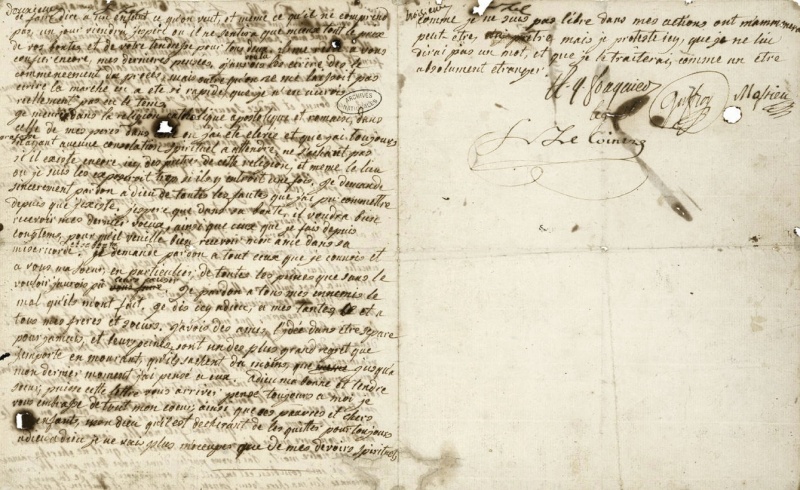 deuxieme
de faire dire a un enfant ce qu'on veut, et même ce qu'il ne comprend
pas, un jour viendra j'espere ou il ne sentira que mieux tout le prix
de vos bontés et de votre tendresse pour tous deux. il me reste a vous
confier encore, mes dernieres pensées, j'aurois voulu les écrire des le
commencement du procés; mais outre qu'on ne me laissoit pas
écrire la marche en a été si rapide, que je n'en aurois
réellement pas eu le tems.
je meurs dans la religion catholique apostolique et romaine, dans
celle de mes peres, dans ou j'ai été elevée et que j'ai toujours
n'ayant aucune consolation spirituelle a attendre, ne sachant pas
s'il existe encore ici des prêtres de cette religion, et même le lieu
ou je suis les exposeroit trop s'ils y entroient une fois, je demande
sincerement pardon a dieu de toutes les fautes que j'ai pu commettre
depuis que j'existe. j'espere que dans sa bonté, il voudra bien
recevoir mes derniers voeux, ainsi que ceux que je fais depuis
longtems, pour qu'il veuille bien recevoir mon ame dans sa
misericorde et sa bonté. je demande pardon a tout ceux que je connois et
a vous ma soeur en particulier, de toutes les peines que sans le
vouloir, j'aurois pu leur causer je pardonne a tous mes ennemis le
mal qu'ils m'ont fait. je dis ici adieu, a mes tantes et a
tous mes freres et soeurs. j'avois des amis l'idée d'en être séparée
pour jamais, et leurs peines, sont un des plus grands regret que
j'emporte en mourant, qu'ils sachent du moins, que jusqu'a
mon dernier moment j'ai pensé a eux. adieu ma bonne et tendre
soeur, puisse cette lettre vous arriver. pensé toujours a moi je
vous embrasse de tout mon coeur, ainsi que ces pauvres et chers
enfants; mon dieu qu'il est déchirant de les quitter pour toujours
adieu adieu je ne vais plus m'occuper que de mes devoirs spirituels
comme je ne suis pas libre dans mes actions ont m'amenera
peut être, un prêtre, mais je proteste ici, que je ne lui
dirai pas un mot, et que je le traiterai, comme un être
absolument etranger.
ARCHIVES NATIONALES
A. Q. Fouquier
Guffroy
Massieu
Le Cointre